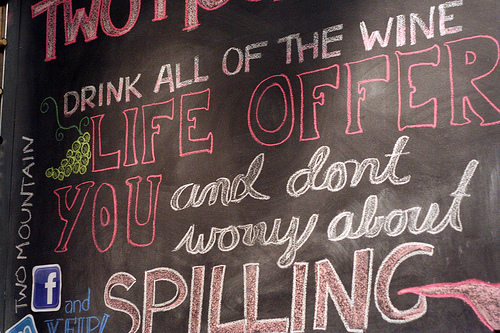 TWO
DRINK ALL OF THE WINE
LIFE OFFER
YOU and dont
worry about
SPILLING
TWO MOUNTAIN
f and
YELP!